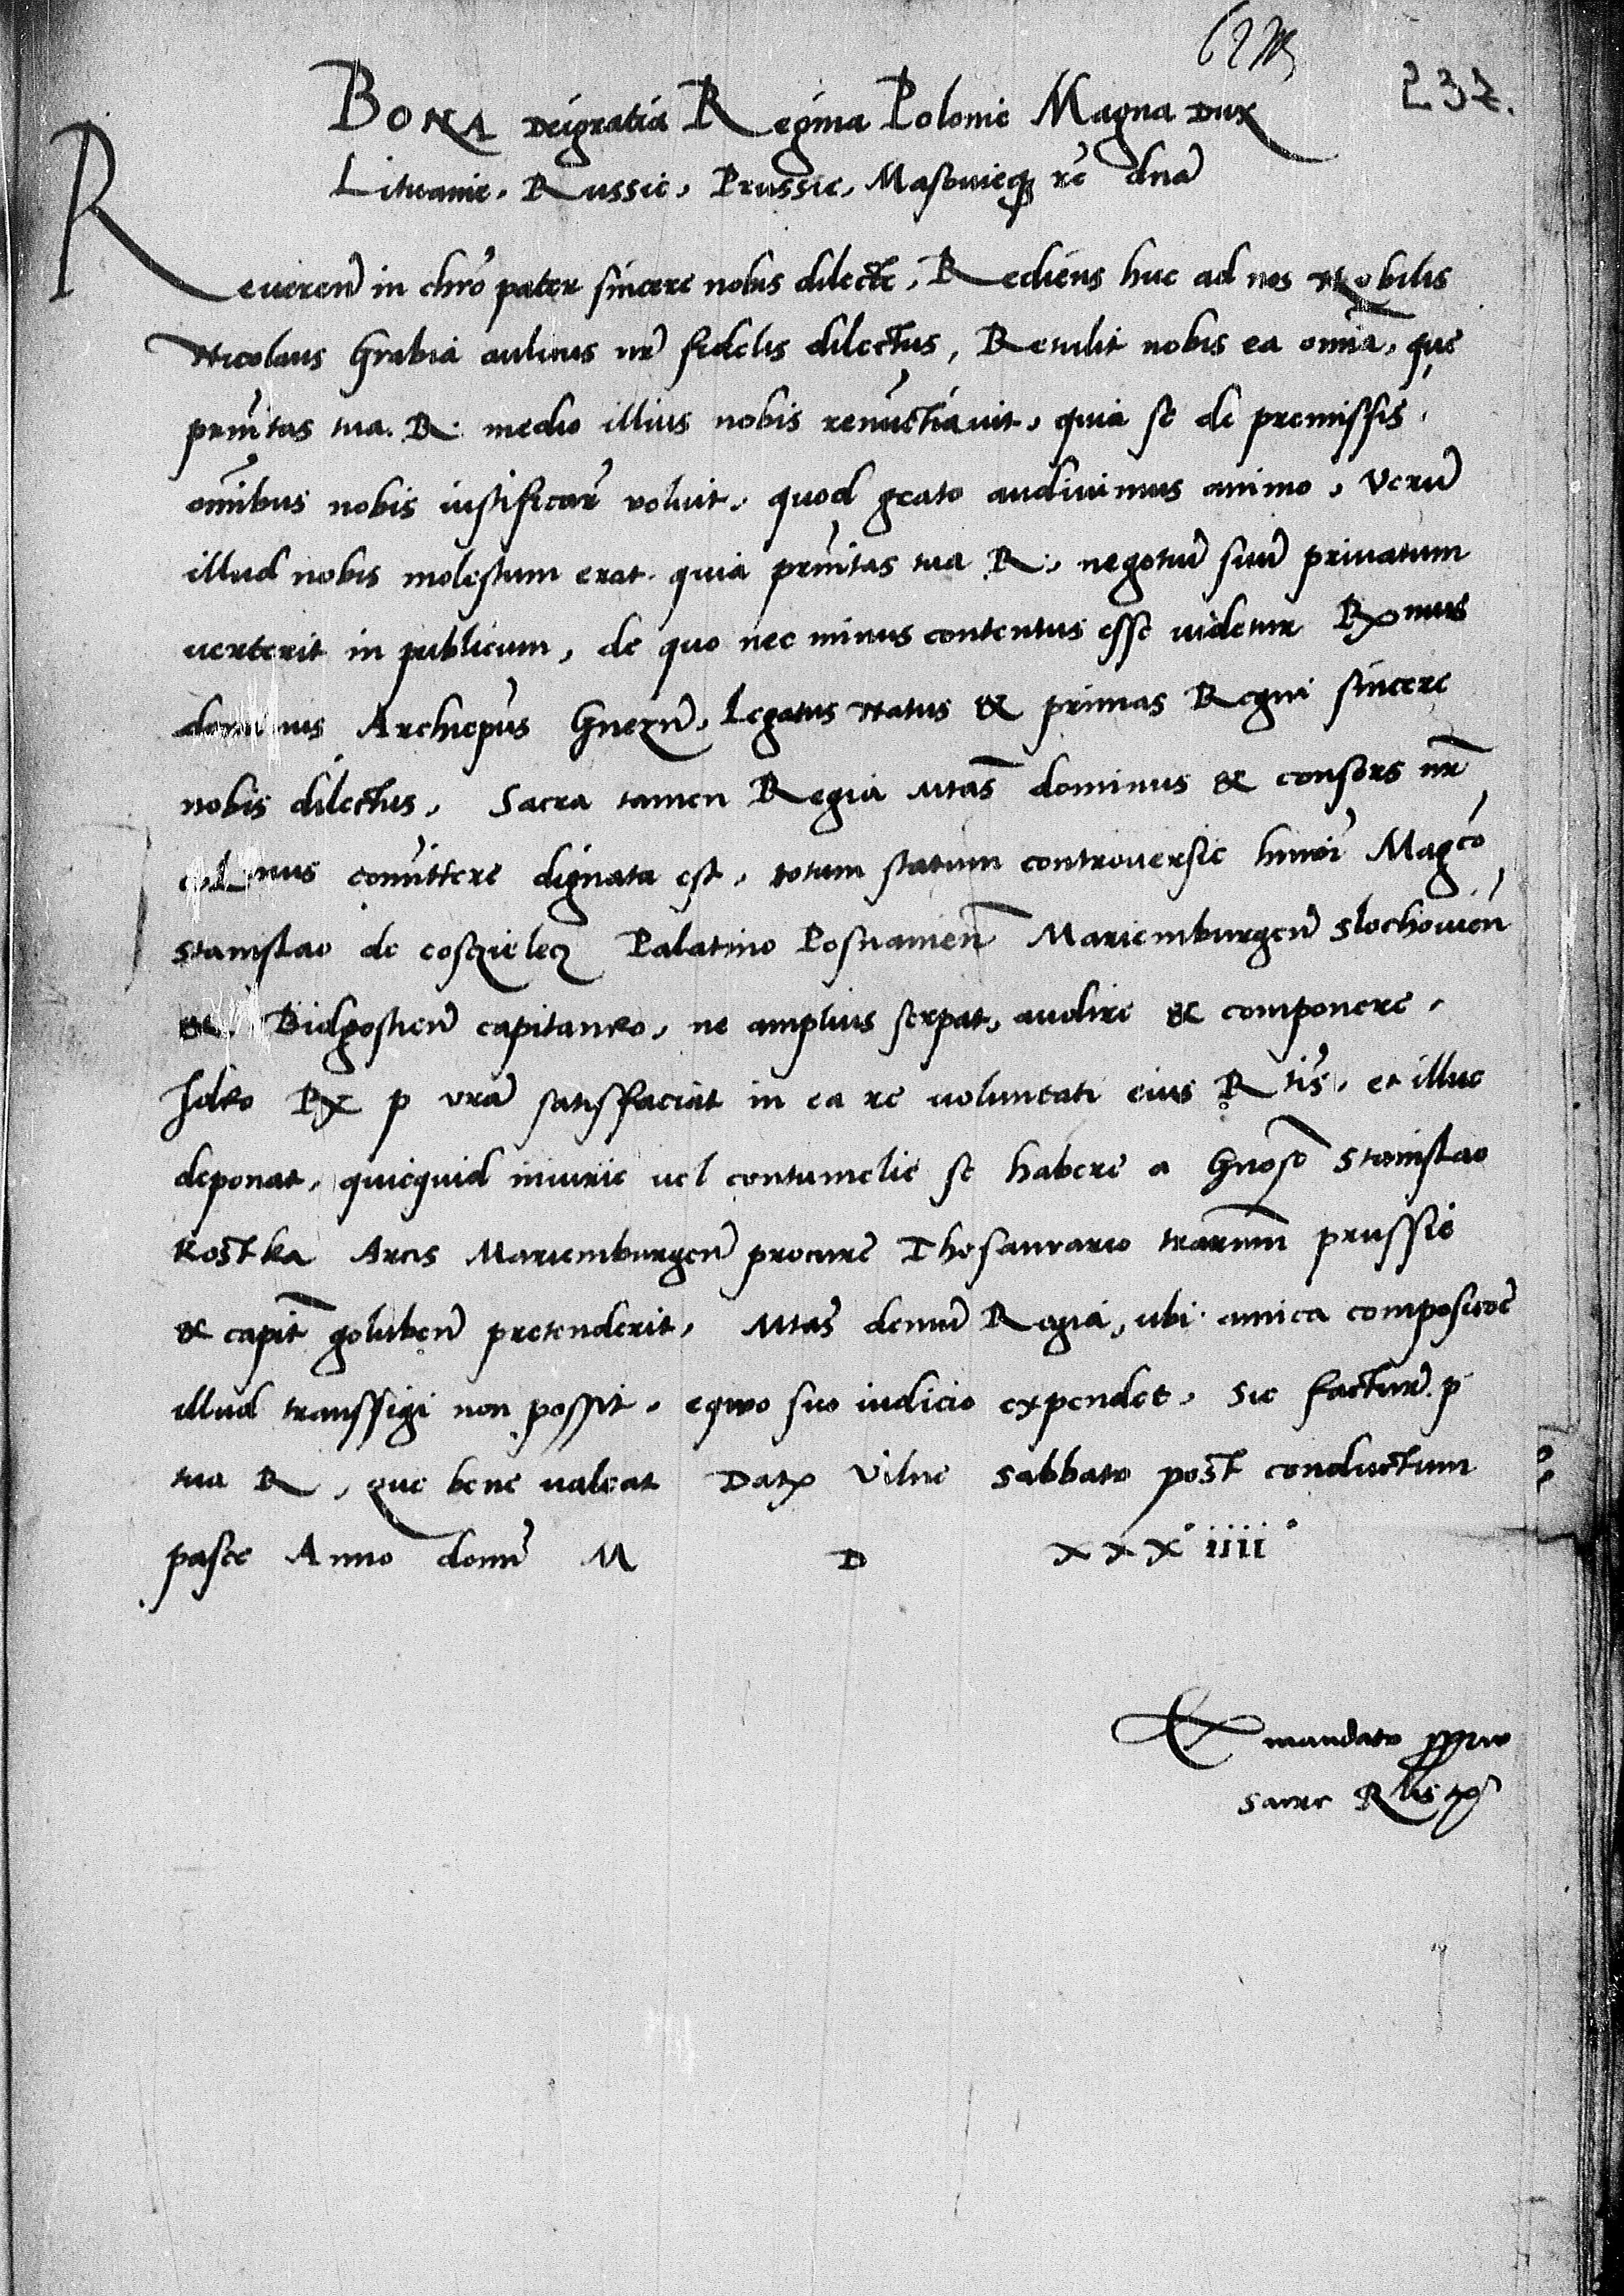 237.
BONA Deigratia Regina Polonie Magna Dux
Lituanie, Russie, Prussie, Masouieq₃ rē dnā
Reuerenᷘ in chro pater sincere nobis dilecte, Rediens huc ad nos Nobilis
Nicolaus Grabia aulicus nr̄ fidelis dilectus, Retulit nobis ea omnia, que
pr̄nitas tua R. medio illius nobis renuctiauit, quia se de premissis
omībus nobis iustificar̄ voluit, quod grato audiuimus animo, Verū
illud nobis molestum erat quia pr̄nitas tua R. negotiū suū priuatum
uerterit in publicum, de quo nec minus contentus esse uidetur Rx mus
dominus Archiepūs Gnezn̄. Legatus Natus & primas Regni sincere
nobis dilectus. Sacra tamen Regia Mtas̄ dominus & consors nr̄
comīttere dignata est, totum statum controuersie huiōi Magco
Stanislao de coscielecz Palatino Posnanien̄ Mariemburgen̄ Slochouien̄
& Bidgostien̄ capitaneo, ne amplius serpat, audire & componere.
Ideo Rx p vr̄a satisfaciat in ea re uoluntati eius Rtis̄. et illuc
deponat, quicquid iniurie uel contumelie se habere a Gnoso Stanislao
Kostka Arcis Mariemburgen̄ procure Thesaurario trarum̄ prussie
& capit̄ goluben̄ pretenderit. Mtas̄ demū Regia, ubi amica compositoē
illud transsigi non possit, equo suo iudicio expendet. Sic facturē p
tua R. que bene ualeat Datx Vilne Sabbato post conductum
pasce Anno domī M D XXX° iiii°
Ex mandato pprio
Sacre R